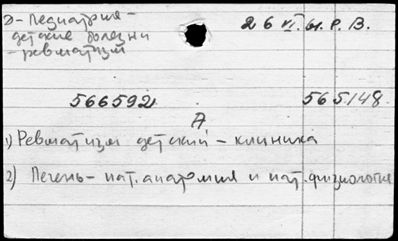 Д - Педиатрия -
детские болезни
- ревматизм
26 VI. М.Р.В.
566592 565148
А
1) Ревматизм детский - клиника
2) Печень - пат. анатомия и пат. физиология